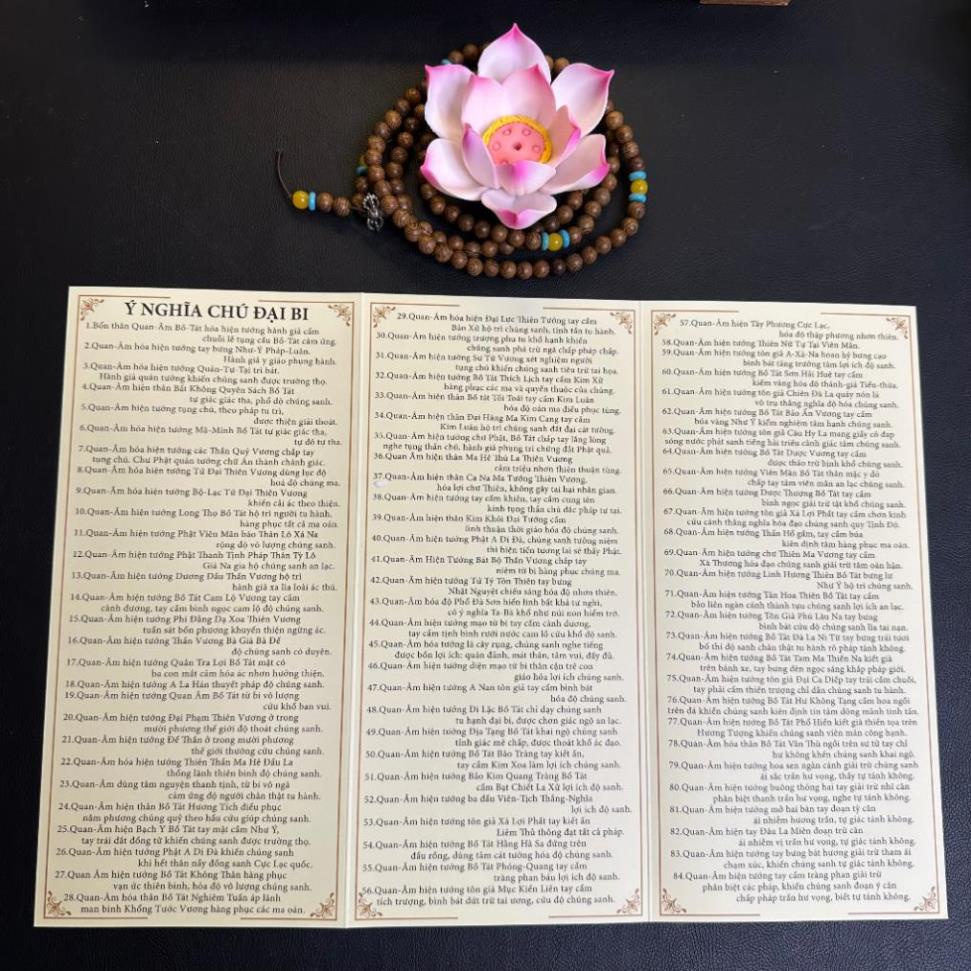 Ý NGHĨA CHÚ ĐẠI BI
1.Bổn thân Quan-Âm Bồ-Tát hóa hiện tướng hành giả cầm
chuỗi lễ tụng cầu Bồ-Tát cảm ứng.
2.Quan-Âm hóa hiện tướng tay bưng Như-Ý Pháp-Luân.
Hành giả y giáo phụng hành.
3.Quan-Âm hóa hiện tướng Quán-Tự-Tại trì bát.
Hành giả quán tưởng khiến chúng sanh được trường thọ.
4.Quan-Âm hiện thân Bất Không Quyên Sách Bồ Tát
tự giác giác tha, phổ độ chúng sanh.
5.Quan-Âm hóa hiện tướng tụng chú, theo pháp tu trì,
được thiện giải thoát.
6.Quan-Âm hóa hiện tướng Mã-Minh Bồ Tát tự giác giác tha,
tự độ tự tha.
7.Quan-Âm hóa hiện tướng các Thần Quỷ Vương chắp tay
tụng chú. Chư Phật quán tưởng chữ Án thành chánh giác.
8.Quan-Âm hóa hiện tướng Tứ Đại Thiên Vương dùng lục độ
hoá độ chúng ma.
9.Quan-Âm hóa hiện tướng Bộ-Lạc Tứ Đại Thiên Vương
khiển cải ác theo thiện.
10.Quan-Âm hiện tướng Long Thọ Bồ Tát hộ trì người tu hành,
hàng phục tất cả ma oán.
11.Quan-Âm hiện tướng Phật Viên Mãn báo Thân Lô Xá Na
rộng độ vô lượng chúng sanh.
12.Quan-Âm hiện tướng Phật Thanh Tịnh Pháp Thân Tỳ Lô
Giá Na gia hộ chúng sanh an lạc.
13.Quan-Âm hiện tướng Dương Đầu Thần Vương hộ trì
hành giả xa lìa loài ác thú.
14.Quan-Âm hiện tướng Bồ Tát Cam Lộ Vương tay cầm
cành dương, tay cầm bình ngọc cam lộ độ chúng sanh.
15.Quan-Âm hiện tướng Phi Đằng Dạ Xoa Thiên Vương
tuần sát bốn phương khuyến thiện ngừng ác.
16.Quan-Âm hiện tướng Thần Vương Bà Già Bà Đế
độ chúng sanh có duyên.
17.Quan-Âm hiện tướng Quân Tra Lợi Bồ Tát mặt có
ba con mắt cảm hóa ác nhơn hướng thiện.
18.Quan-Âm hiện tướng A La Hán thuyết pháp độ chúng sanh.
19.Quan-Âm hiện tướng Quan Âm Bồ Tát từ bi vô lượng
cứu khổ ban vui.
20.Quan-Âm hiện tướng Đại Phạm Thiên Vương ở trong
mười phương thế giới độ thoát chúng sanh.
21.Quan-Âm hiện tướng Đế Thần ở trong mười phương
thế giới thường cứu chúng sanh.
22.Quan-Âm hóa hiện tướng Thiên Thần Ma Hê Đầu La
thống lãnh thiên binh độ chúng sanh.
23.Quan-Âm dùng tâm nguyện thanh tịnh, từ bi vô ngã
cảm ứng độ người chân thật tu hành.
24.Quan-Âm hiện thân Bồ Tát Hương Tích điều phục
năm phương chúng quỷ theo hầu cứu giúp chúng sanh.
25.Quan-Âm hiện Bạch Y Bồ Tát tay mặt cầm Như Ý,
tay trái dắt đồng tử khiến chúng sanh được trường thọ.
26.Quan-Âm hiện tướng Phật A Di Đà khiến chúng sanh
khi hết thân nầy đồng sanh Cực Lạc quốc.
27.Quan Âm hiện thân Bồ Tát Không Thân hàng phục
vạn ức thiên binh, hóa độ vô lượng chúng sanh.
28.Quan-Âm hóa thân Bồ Tát Nghiêm Tuấn áp lãnh
man binh Khổng Tước Vương hàng phục các ma oán.
29.Quan-Âm hóa hiện Đại Lực Thiên Tướng tay cầm
Bảo Xử hộ trì chúng sanh, tinh tấn tu hành.
30.Quan-Âm hiện tướng trượng phu tu khổ hạnh khiến
chúng sanh phá trừ ngã chấp pháp chấp.
31.Quan-Âm hiện tướng Sư Tử Vương xét nghiệm người
tụng chú khiến chúng sanh tiêu trừ tai họa.
32.Quan-Âm hiện tướng Bồ Tát Thích Lịch tay cầm Kim Xử
hàng phục các ma và quyến thuộc của chúng.
33.Quan-Âm hiện thân Bồ tát Tồi Toái tay cầm Kim Luân
hóa độ oán ma điều phục tùng.
34.Quan-Âm hiện thân Đại Hàng Ma Kim Cang tay cầm
Kim Luân hộ trì chúng sanh đắt đại cát tường.
35.Quan-Âm hiện tướng chư Phật, Bồ Tát chắp tay lắng lòng
nghe tụng thần chú, hành giả phụng trì chứng đắt Phật quả.
36.Quan Âm hiện thân Ma Hê Thủ La Thiên Vương
cảm triệu nhơn thiên thuận tùng.
37.Quan-Âm hiện thân Ca Na Ma Tướng Thiên Vương,
hóa lợi chư Thiên, không gây tai hại nhân gian.
38.Quan-Âm hiện tướng tay cầm khiên, tay cầm cung tên
kinh tụng thần chú đắc pháp tự tại.
39.Quan-Âm hiện thân Kim Khôi Đại Tướng cầm
linh thuận thời giáo hóa độ chúng sanh.
40.Quan-Âm hiện tướng Phật A Di Đà, chúng sanh tưởng niệm
thì hiện tiền tương lai sẽ thấy Phật.
41.Quan-Âm Hiện Tướng Bát Bộ Thần Vương chắp tay
niệm từ bi hàng phục chúng ma.
42.Quan-Âm hiện tướng Tứ Tý Tôn Thiên tay bưng
Nhật Nguyệt chiếu sáng hóa độ nhơn thiên.
43.Quan-Âm hóa độ Phổ Đà Sơn hiển linh bất khả tư nghì,
có ý nghĩa Ta-Bà khổ như núi non hiểm trở.
44.Quan-Âm hiện tướng mạo từ bi tay cầm cành dương,
tay cầm tịnh bình rưới nước cam lồ cứu khổ độ sanh.
45.Quan-Âm hóa hiện tướng lá cây rụng, chúng sanh nghe tiếng
được bốn lợi ích: quán đảnh, mát thân, tâm vui, đầy đủ.
46.Quan-Âm hiện tướng diện mạo từ bi thân cận trẻ con
giáo hóa lợi ích chúng sanh.
47.Quan-Âm hiện tướng A Nan tôn giả tay cầm bình bát
hóa độ chúng sanh.
48.Quan-Âm hiện tướng Di Lặc Bồ Tát chỉ dạy chúng sanh
tu hạnh đại bi, được chơn giác ngộ an lạc.
49.Quan-Âm hiện tướng Địa Tạng Bồ Tát khai ngộ chúng sanh
tỉnh giác mê chấp, được thoát khổ ác đạo.
50.Quan-Âm hiện tướng Bồ Tát Bảo Tràng tay kiết ấn,
tay cầm Kim Xoa làm lợi ích chúng sanh.
51.Quan-Âm hiện tướng Bảo Kim Quang Tràng Bồ Tát
cầm Bạt Chiết La Xử lợi ích độ sanh.
52.Quan-Âm hiện tướng ba đầu Viên-Tịch Thắng-Nghĩa
lợi ích độ sanh.
53.Quan-Âm hiện tướng tôn giả Xá Lợi Phất tay kiết ấn
Liêm Thủ thông đạt tất cả pháp.
54.Quan-Âm hiện tướng Bồ Tát Hằng Hà Sa đứng trên
đầu rồng, dùng tâm cát tường hóa độ chúng sanh.
55.Quan-Âm hiện tướng Bồ Tát Phóng-Quang tay cầm
tràng phan báu lợi ích độ sanh.
56.Quan-Âm hiện tướng tôn giả Mục Kiền Liên tay cầm
tích trượng, bình bát dứt trừ tai ương, cứu độ chúng sanh.
57.Quan-Âm hiện Tây Phương Cực Lạc,
hóa độ thập phương nhơn thiên.
58.Quan-Âm hiện tướng Thiên Nữ Tự Tại Viên Mãn.
59.Quan-Âm hiện tướng tôn giả A-Xà-Na hoan hỷ bưng cao
bình bát tăng trưởng tâm lợi ích độ sanh.
60.Quan-Âm hiện tướng Bồ Tát Sơn Hải Huệ tay cầm
kiếm vàng hóa độ thánh-giả Tiểu-thừa.
61.Quan-Âm hiện tướng tôn giả Chiên Đà La quảy nón lá
vô trụ thắng nghĩa độ hóa chúng sanh.
62.Quan-Âm hiện tướng Bồ Tát Bảo Ấn Vương tay cầm
hóa vàng Như Ý kiểm nghiệm tâm hạnh chúng sanh.
63.Quan-Âm hiện tướng tôn giả Câu Hy La mang giày cỏ đạp
sóng nước phát sanh tiếng hải triều cảnh giác tâm chúng sanh.
64.Quan-Âm hiện tướng Bồ Tát Dược Vương tay cầm
dược thảo trừ bịnh khổ chúng sanh.
65.Quan-Âm hiện tướng Viên Mãn Bồ Tát thân mặc y đỏ
chắp tay tâm viên mãn an lạc chúng sanh.
66.Quan-Âm hiện tướng Dược Thượng Bồ Tát tay cầm
bình ngọc giải trừ tật khổ chúng sanh.
67.Quan-Âm hiện tướng tôn giả Xá Lợi Phất tay cầm chơn kinh
cứu cánh thắng nghĩa hóa đạo chúng sanh quy Tịnh Độ.
68.Quan-Âm hiện tướng Thần Hổ gấm, tay cầm búa
kiên định tâm hàng phục ma oán.
69.Quan-Âm hiện tướng chư Thiên Ma Vương tay cầm
Xà Thương hóa đạo chúng sanh giải trừ tâm oán hận.
70.Quan-Âm hiện tướng Linh Hương Thiên Bồ Tát bưng lư
Như Ý hộ trì chúng sanh.
71.Quan-Âm hiện tướng Tán Hoa Thiên Bồ Tát tay cầm
bảo liên ngàn cánh thành tựu chúng sanh lợi ích an lạc.
72.Quan-Âm hiện tướng Tôn Giả Phú Lâu Na tay bưng
bình bát cứu độ chúng sanh lìa tai nạn.
73.Quan-Âm hiện tướng Bồ Tát Đà La Ni Tử tay bưng trái tươi
bố thí độ sanh chân thật tu hành rõ pháp tánh không.
74.Quan-Âm hiện tướng Bồ Tát Tam Ma Thiền Na kiết già
trên bánh xe, tay bưng đèn ngọc sáng khắp pháp giới.
75.Quan-Âm hiện tướng tôn giả Đại Ca Diếp tay trái cầm chuỗi,
tay phải cầm thiền trượng chỉ dẫn chúng sanh tu hành.
76.Quan-Âm hiện tướng Bồ Tát Hư Không Tạng cầm hoa ngồi
trên đá khiến chúng sanh kiên định tín tâm dõng mãnh tinh tấn.
77.Quan-Âm hiện tướng Bồ Tát Phổ Hiền kiết già thiền tọa trên
Hương Tượng khiến chúng sanh viên mãn công hạnh.
78.Quan-Âm hóa thân Bồ Tát Văn Thù ngồi trên sư tử tay chỉ
hư không khiến chúng sanh khai ngộ.
79.Quan-Âm hiện tướng hoa sen ngàn cánh giải trừ chúng sanh
ái sắc trần hư vọng, thấy tự tánh không.
80.Quan-Âm hiện tướng buông thõng hai tay giải trừ nhĩ căn
phân biệt thanh trần hư vọng, nghe tự tánh không.
81.Quan-Âm hiện tướng mở hai bàn tay đoạn tỷ căn
ái nhiễm hương trần, tự giác tánh không.
82.Quan-Âm hiện tay Đâu La Miên đoạn trừ căn
ái nhiễm vị trần hư vọng, tự giác tánh không.
83.Quan-Âm hiện tướng tay bưng bát hương giải trừ tham ái
chạm xúc, khiến chúng sanh tự giác tánh không.
84.Quan-Âm hiện tướng tay cầm tràng phan giải trừ
phân biệt các pháp, khiến chúng sanh đoạn ý căn
chấp pháp trần hư vọng, biết tự tánh không.